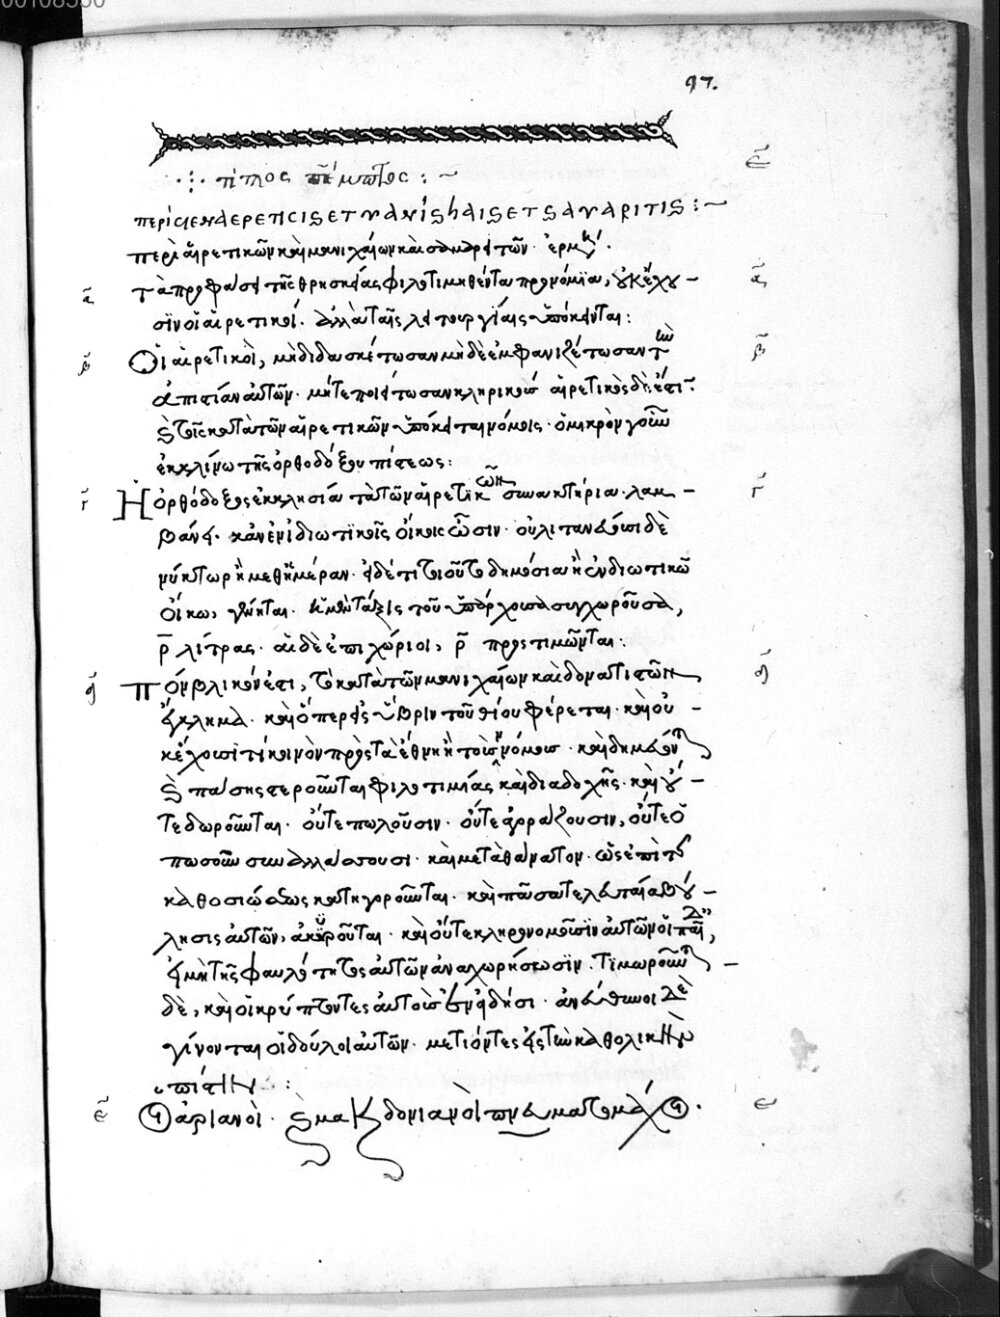 97.
τίτλος πέμπτος : ~
ε̄
περὶ ςιεηαερετιcις ετ μανιςhαις ετ ςαμαριτις : ~
περὶ αἱρετικῶν καὶ μανιχαίων καὶ σαμαρειτῶν
ᾱ τὰ προφάσει τῆς θρησκείας φιλοτιμηθέντα προνόμια, οὐκ ἔχου – ᾱ
σιν οἱ αἱρετικοί. ἀλλὰ ταῖς λειτουργίαις ὑπόκεινται :
β̄ Οἱ αἱρετικοὶ, μὴ διδασκέτωσαν μὴδὲ ἐμφανιζέτωσαν τὴν β̄
ἀπιστίαν αὐτῶν. μήτε ποιείτωσαν κληρικούς αἱρετικὸς δὲ ἐστι
καὶ τοῖς κατὰ τῶν αἱρετικῶν ὑπόκειται νόμοις. ὁ μικρὸν γοῦν
ἐκκλίνων τῆς ὀρθοδόξου πίστεως :
γ̄ Ἡ ὀρθόδοξος ἐκκλησία τὰ τῶν αἱρετικῶν συνακτήρια λαμ – γ̄
βάνει. κἂν ἐν ἰδιωτικοῖς οἴκοις ὦσιν. οὐ λιτανεύουσι δὲ
νύκτωρ ἢ μεθ' ἡμέραν. εἰ δέ τι τοιοῦτο δημοσία ἢ ἐν ἰδιωτικῷ
οἴκῳ, γένηται. ἡ μὲν τάξις τοῦ ὑπάρχου συγχωροῦσα,
ρ̄ λίτρας. αἱ δὲ ἐπιχώριοι, ρ̄ προστιμῶνται.
δ̄ Πούβλικόν ἐστι, τὸ κατὰ τῶν μανιχαίων καὶ δονατιστῶν δ̄
ἔγκλημα. καὶ ὅπερ εἰς ὕβριν τοῦ θείου φέρεται. καὶ οὐ –
κ ἔχουσί τι κοινὸν πρὸς τὰ ἔθη ἢ τοὺς νόμους. καὶ δημεύονται
καὶ πάσης στεροῦνται φιλοτιμίας καὶ διαδοχῆς. καὶ οὔ –
τε δωροῦνται. οὔτε πωλοῦσιν. οὔτε ἀγοράζουσιν, οὔτε ὅ
πωσοῦν συναλλάσσουσι. καὶ μετὰ θάνατον. ὡς ἐπὶ τῆς
καθοσιώσεως κατηγοροῦνται. καὶ πᾶσα τελευταία βού –
λησις αὐτῶν, ἀκυροῦται. καὶ οὔτε κληρονομοῦσιν αὐτῶν οἱ παῖδες,
εἰ μὴ τῆς φαυλότητος αὐτῶν ἀναχωρήσωσιν. τιμωροῦνται –
δὲ, καὶ οἱ κρύπτοντες αὐτοὺς ἐν εἰδήσει. ἀνεύθυνοι δὲ
γίνονται οἱ δοῦλοι αὐτῶν. μετιόντες εἰς τὴν καθολικὴν
πίστιν :
ε̄ Οἱ ἀριανοὶ. καὶ μακεδονιανοὶ πνευματομάχοι. ε̄